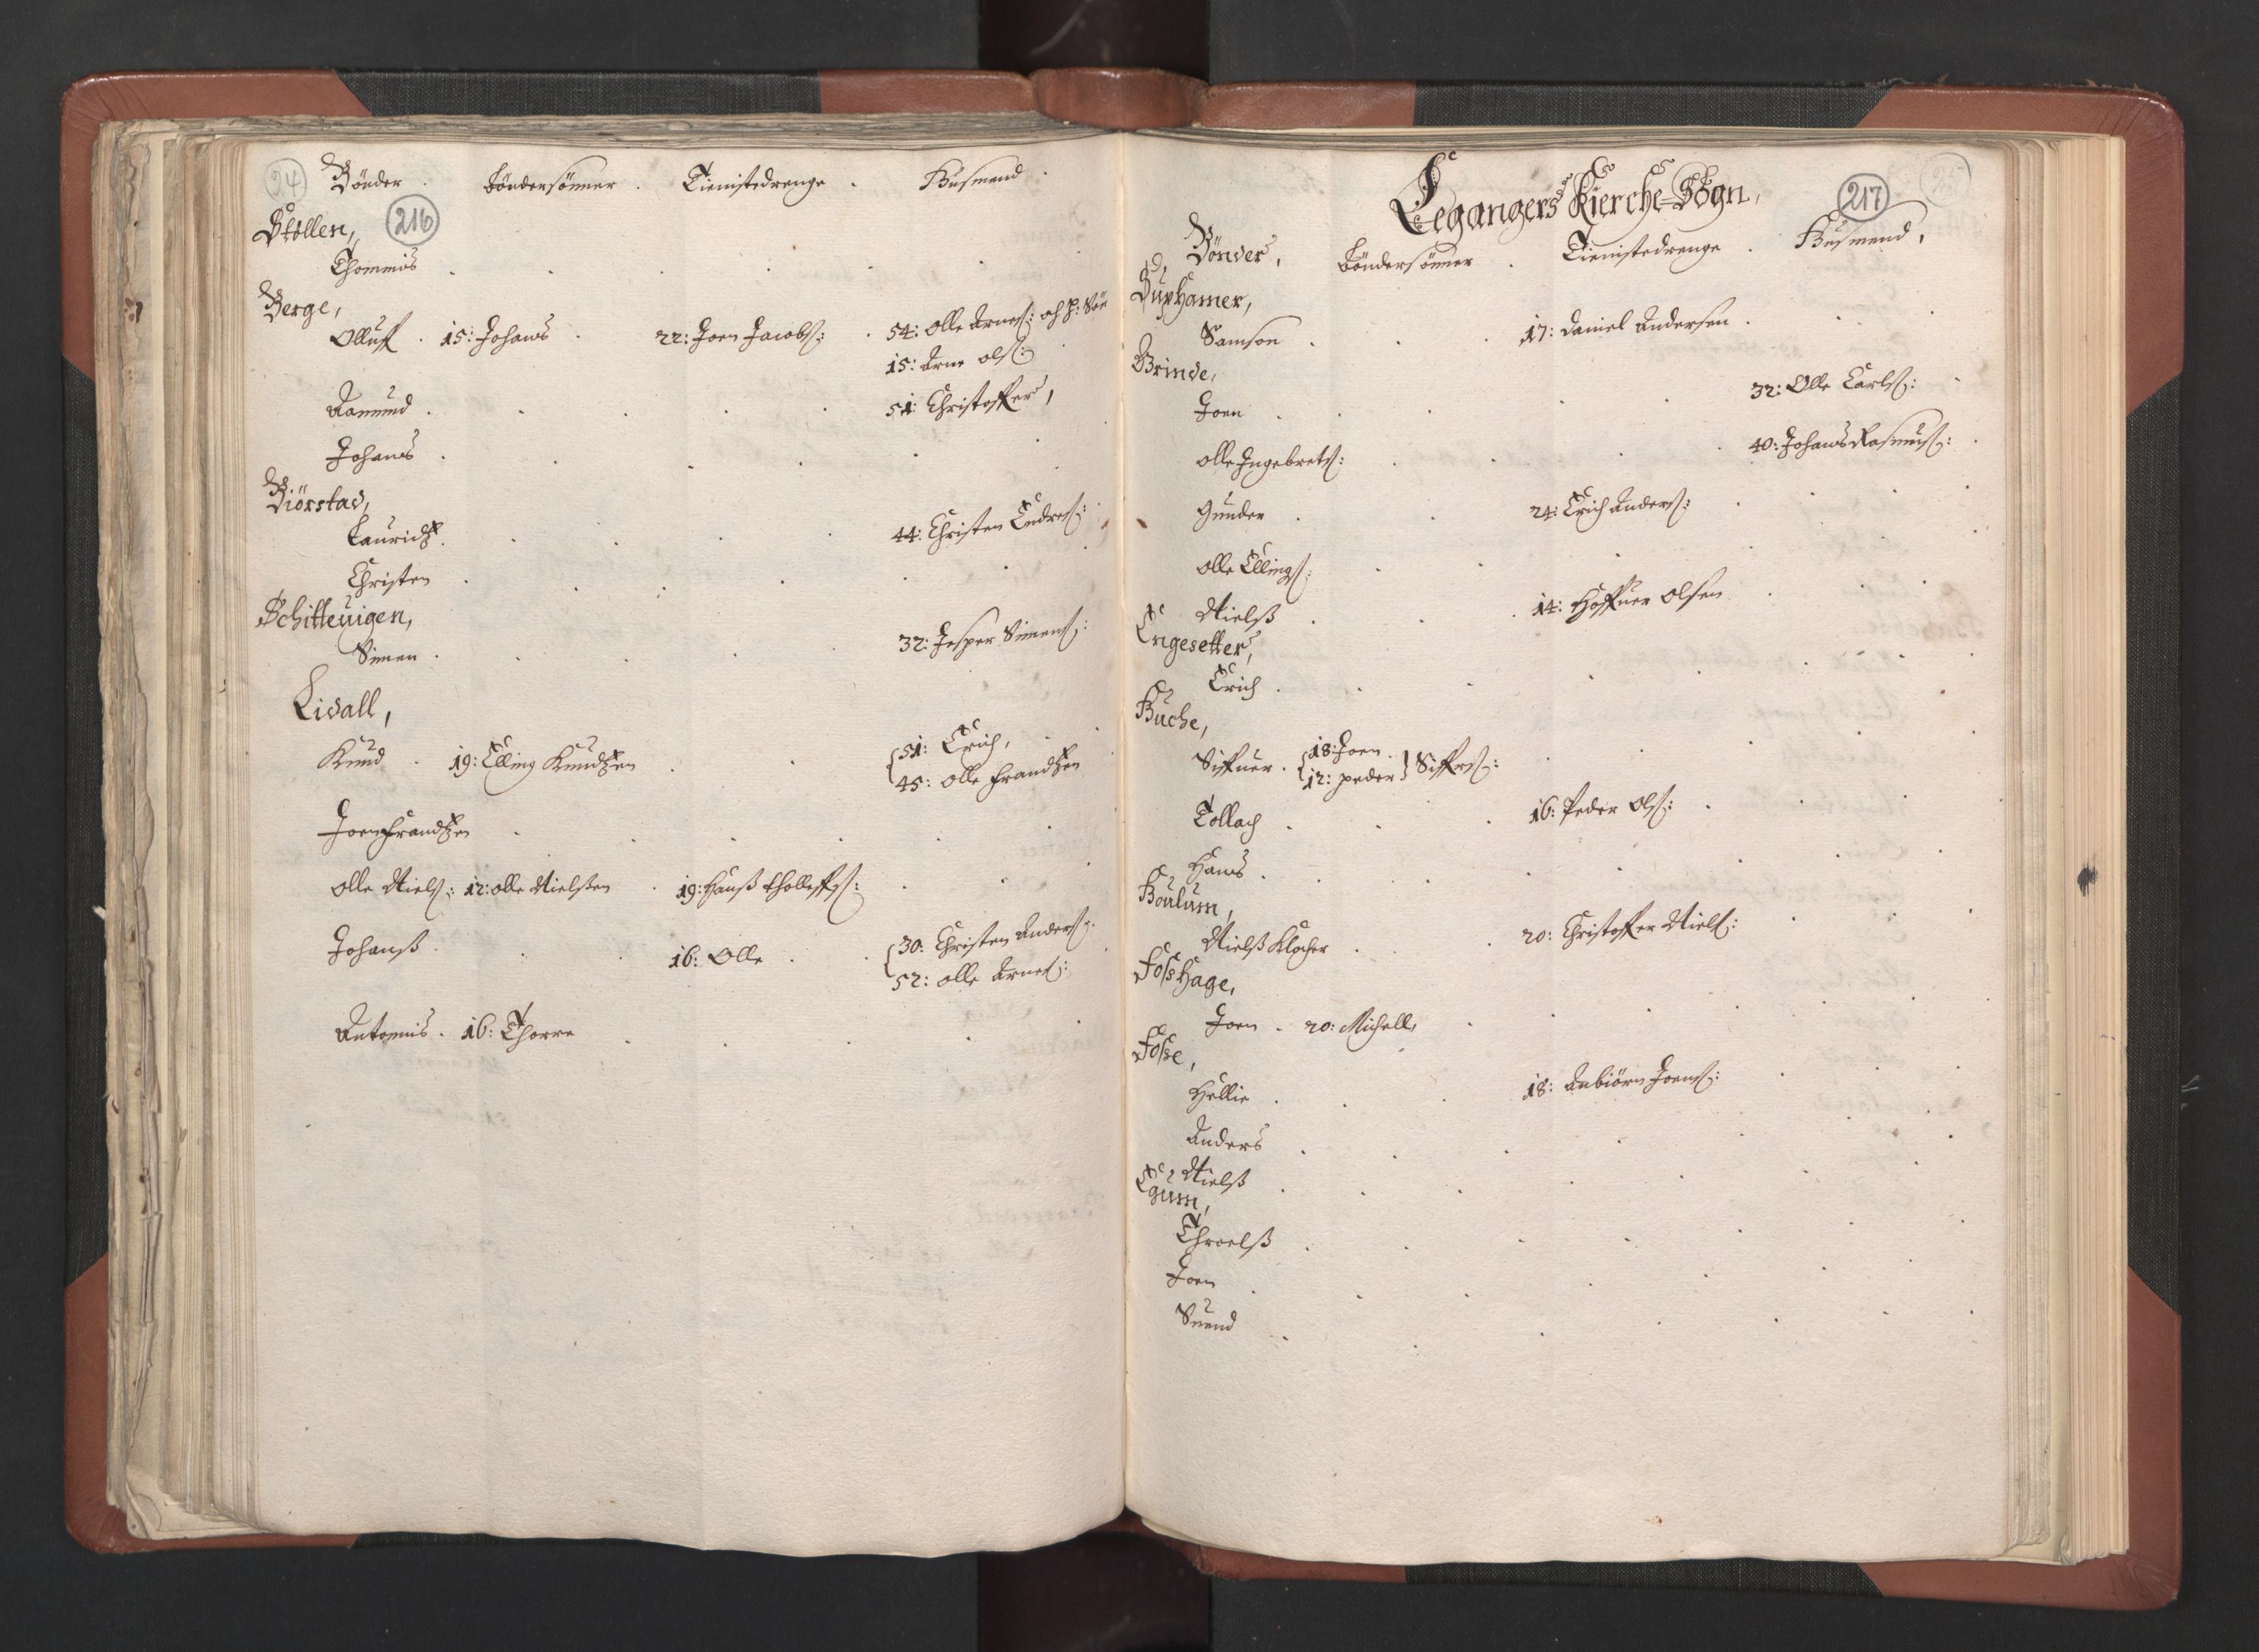 24 Bönder . böndersönner . Tienistedrenge . Husmend .
216
Stöllen,
Thommis . . . . .
Berge,
Olluf . 15: Johans . 22: Joen Jacobs: . 54: Olle Arnes: och h: Sön
15: Arne ols:
Aamund . . . . 51: Christoffer,
Johans . . . .
Biörstad,
Lauridz . . . . 44: Christen Endres:
Christen . . . .
Schitteuigen,
Simen . . . . 32: Jesper Simens:
Lidall,
Knud . 19: Elling Knudzen . 51: Erich,
45: olle Frandzen
Joen Frandzen . . . .
Olle Niels: 12: olle Nielssen . 19: Hanß Tholleffs: .
Johanß . . . 16: Olle . 30: Christen Anders:
52: olle Arnes:
Antonius . 16: Thorre . . . .
Legangers Kierche-Sogn,
217
Bönder, böndersönner . Tienistedrenge . Husmend,
Duxhamer,
Samson . . . 17: Daniel Andersen . . .
Brinde,
Joen . . . . 32: Olle Carls: .
olle Ingebrets: . . . . 40: Johans Rasmus: .
Gunder . . 24: Erich Anders: . . .
olle Ellings: . . . .
Nielß . . . 14: Hoffuer Olsen . . .
Engesetter,
Erich . . . . . .
Huche,
Siffuer . 18: Joen
12: peder Siffrs: . . .
Tollach . . . 16: Peder Ols: . . .
Hans . . . . . .
Houlum,
Nielß Klocher . . 20: Christoffer Niels: . .
Foss Hage,
Joen . 20: Michell, . . . .
Fosse,
Hellie . . . 18: Anbiörn Joens: . .
Anders . . . . . .
Nielß . . . . . .
Egum,
Throelß . . . . .
Joen . . . . .
Suend . . . .